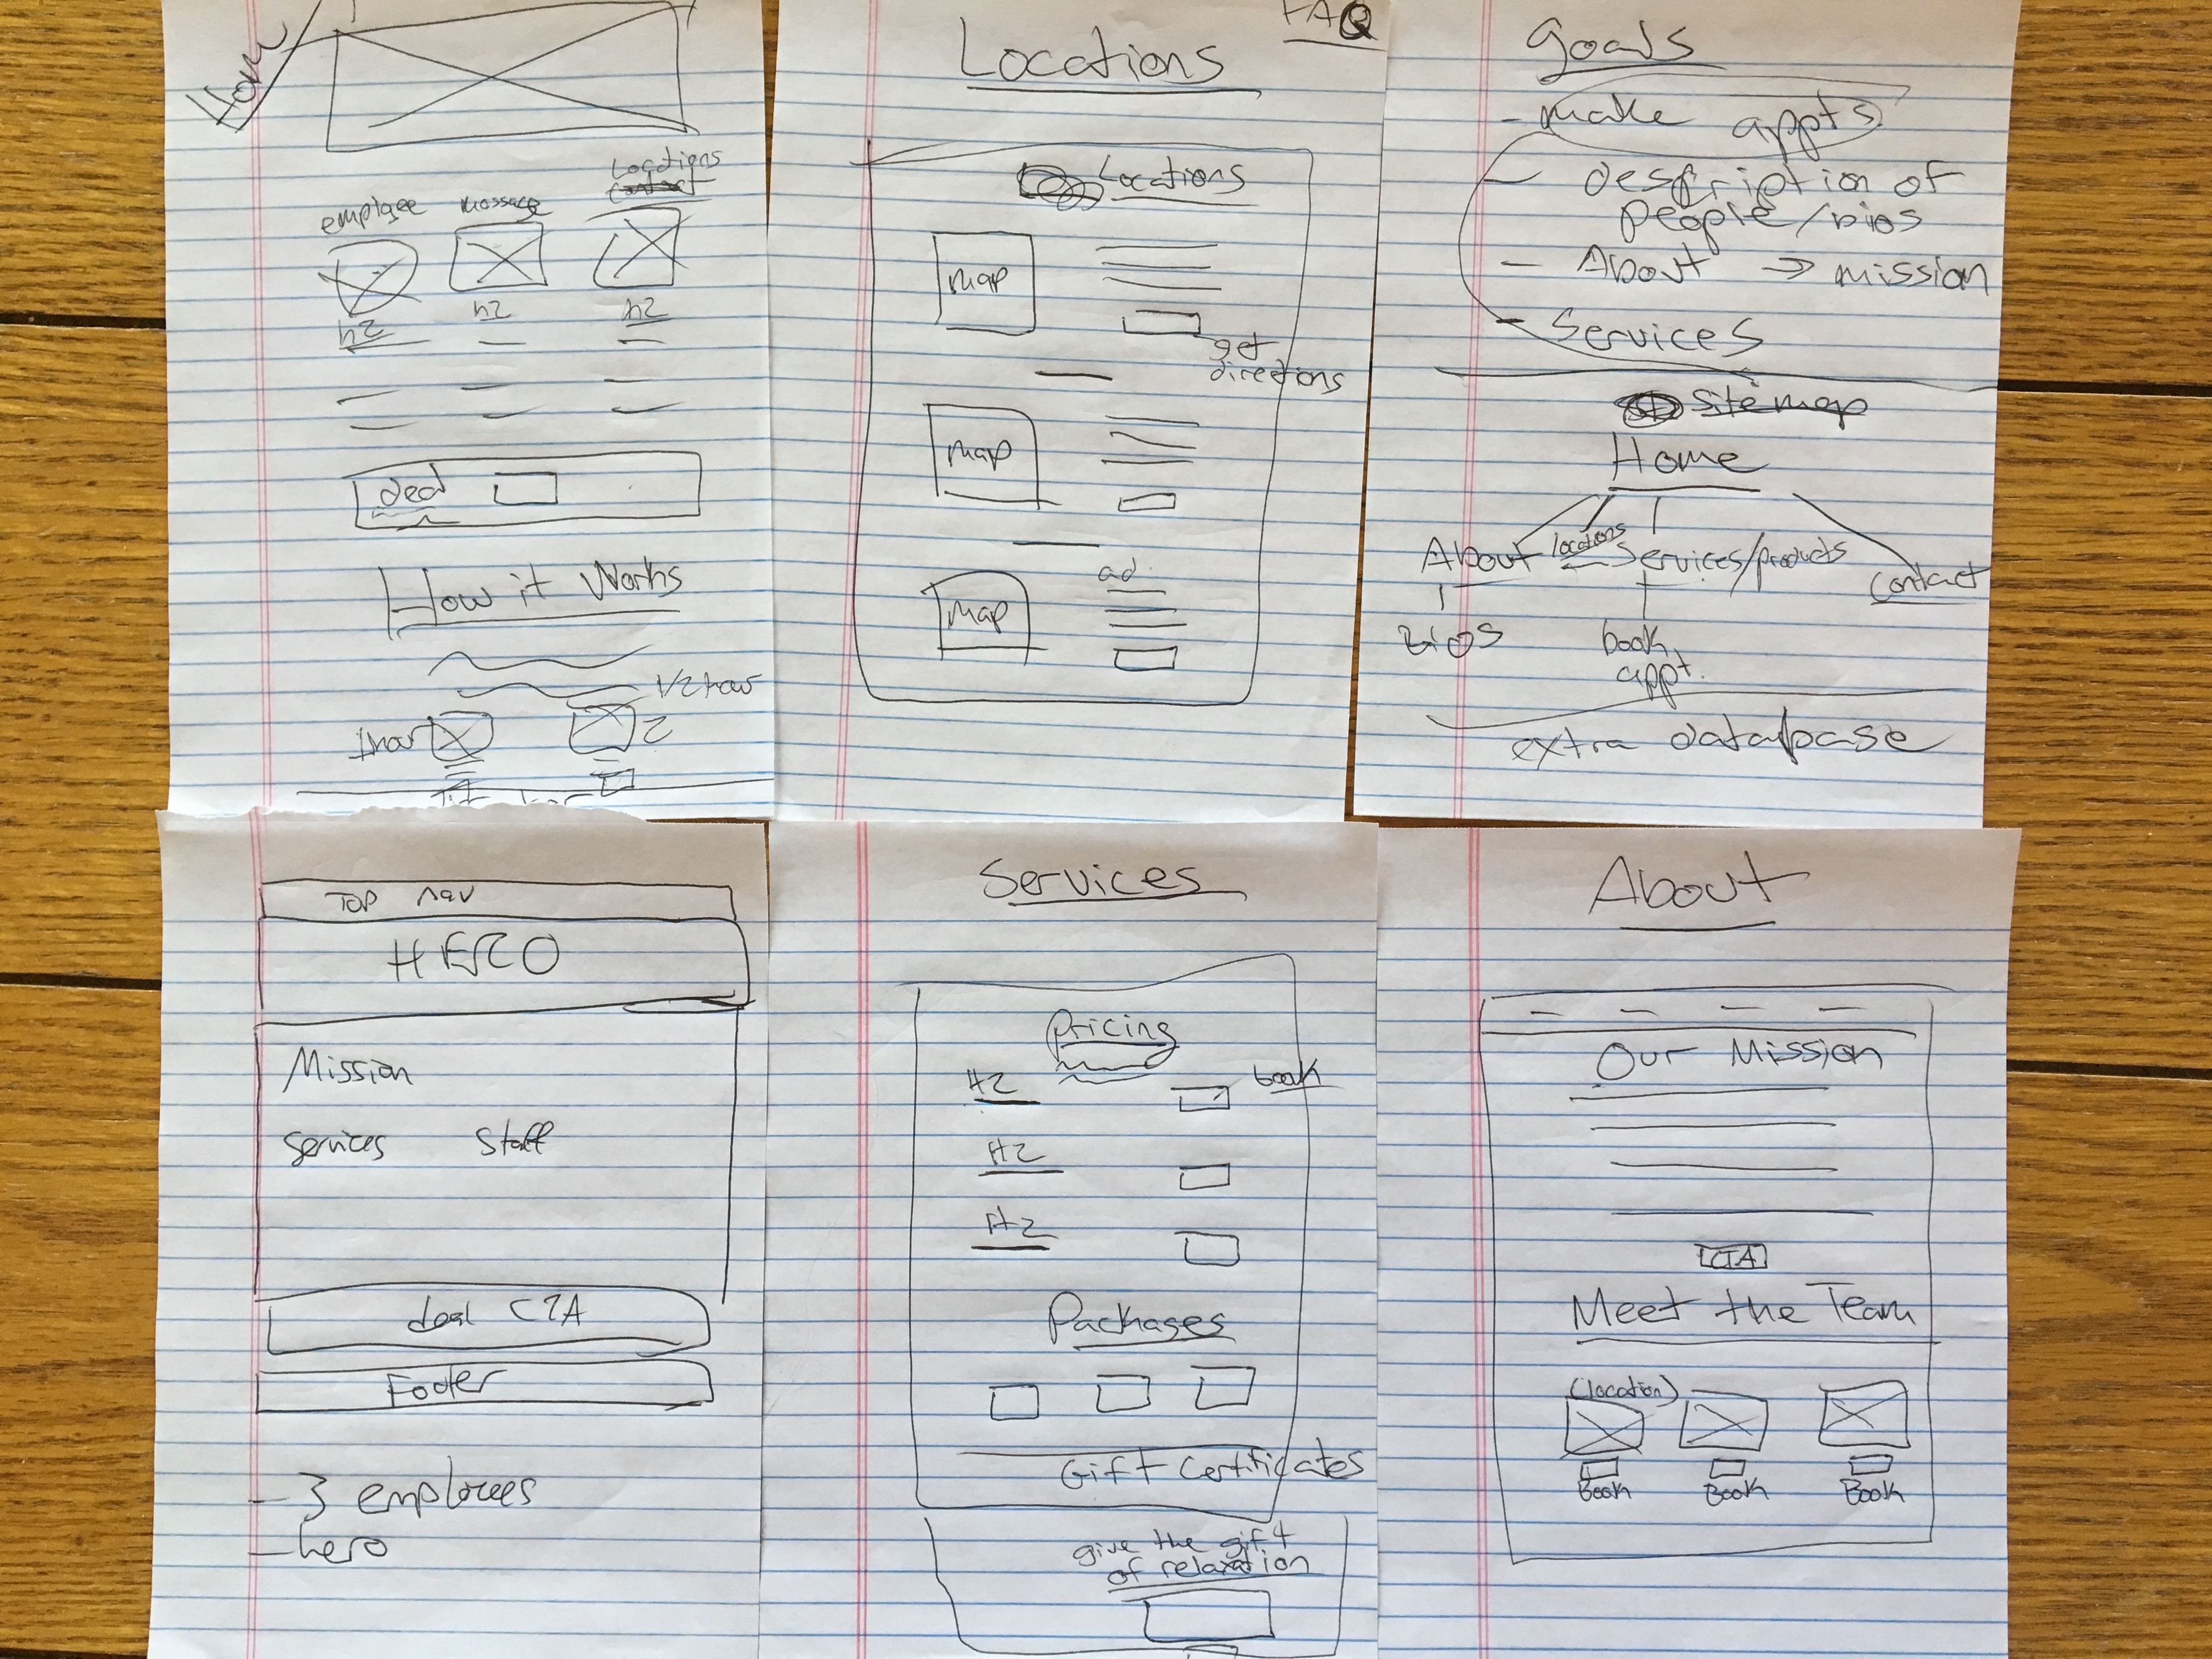 Home
Locations
contact
emplgee
massage
h2
h2
h2
deal
How it Works
1/2 hour
1 hour
2
FAQ
Locations
Locations
map
get
directions
map
ad
map
goals
- make appts
- description of
people/bios
- About → mission
- Services
Sitemap
Home
About
locations
Services/products
contact
Bios
book
appt.
extra database
TOP nav
HERO
Mission
Services
Staff
deal CTA
Footer
- 3 employees
- hero
Services
Pricing
H2
book
H2
H2
Packages
Gift Certificates
give the gift
of relaxation
About
Our Mission
CTA
Meet the Team
(location)
Book
Book
Book